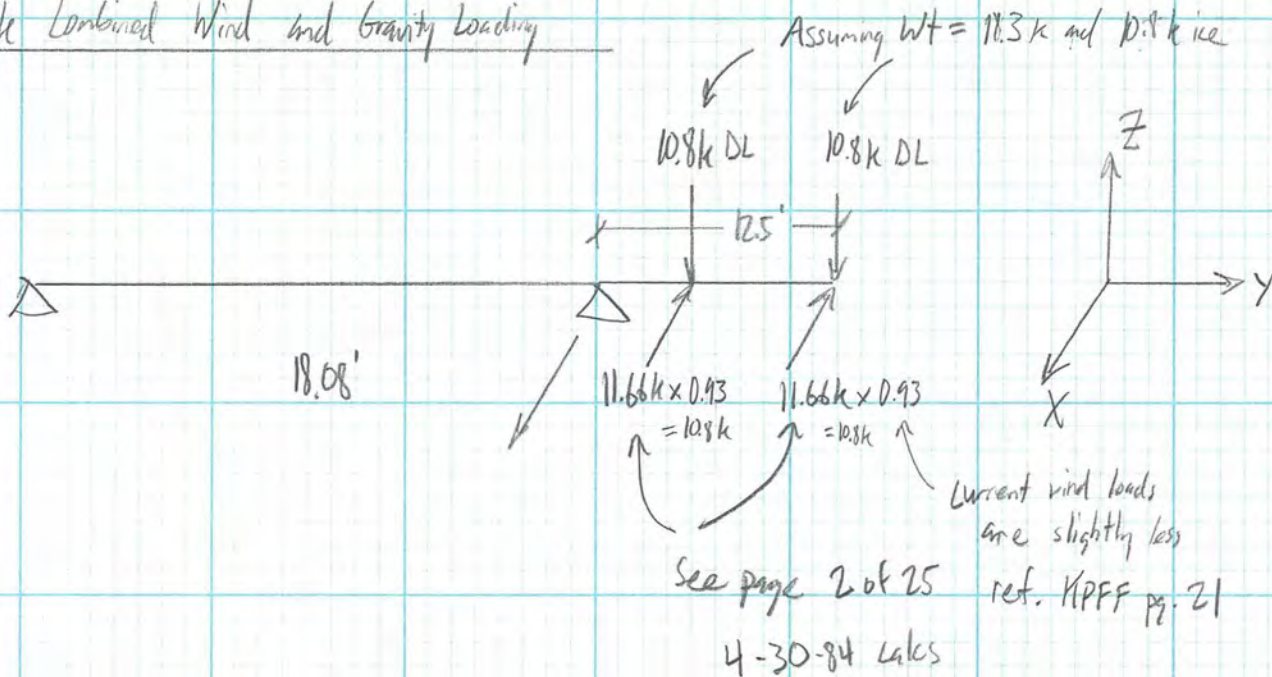 Combined Wind and Gravity Loading
Assuming Wt = 18.3 k and 10.8 k ice
10.8k DL
10.8k DL
Z
12.5'
Y
18.08'
11.66k x 0.93
= 10.8k
11.66k x 0.93
= 10.8k
X
Current wind loads
are slightly less
See page 2 of 25
ref. KPFF pg. 21
4-30-84 calcs